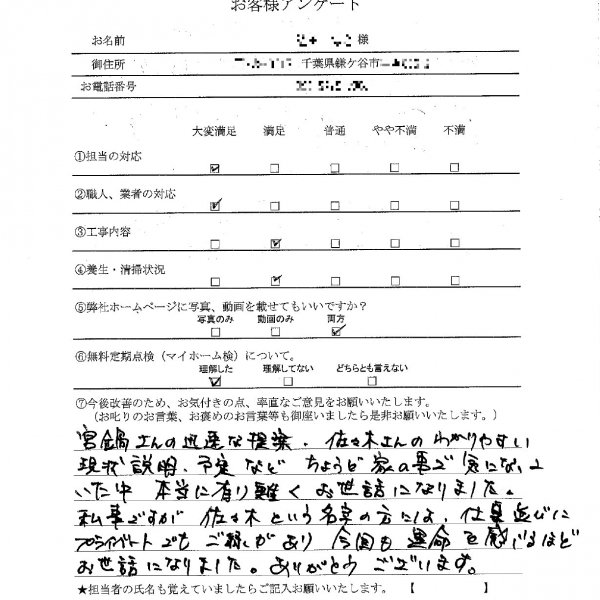 お客様アンケート
お名前 様
御住所 千葉県鎌ケ谷市
お電話番号
大変満足 満足 普通 やや不満 不満
①担当の対応 ☑ □ □ □ □
②職人、業者の対応 ☑ □ □ □ □
③工事内容 □ ☑ □ □ □
④養生・清掃状況 □ ☑ □ □ □
⑤弊社ホームページに写真、動画を載せてもいいですか?
写真のみ 動画のみ 両方
□ □ ☑
⑥無料定期点検（マイホーム検）について。
理解した 理解してない どちらとも言えない
☑ □ □
⑦今後改善のため、お気付きの点、率直なご意見をお願いいたします。
（お叱りのお言葉、お褒めのお言葉等も御座いましたら是非お願いします。）
宮鍋さんの迅速な提案、佐々木さんのわかりやすい
現状説明、予定など ちょうど家の事で気になって
いた中 本当に有り難く お世話になりました。
私事ですが 佐々木という名字の方には、仕事並びに
プライベートでも ご縁があり 今回も 運命を感じるほど
お世話になりました。ありがとうございます。
★担当者の氏名も覚えていましたらご記入お願いします。【 】